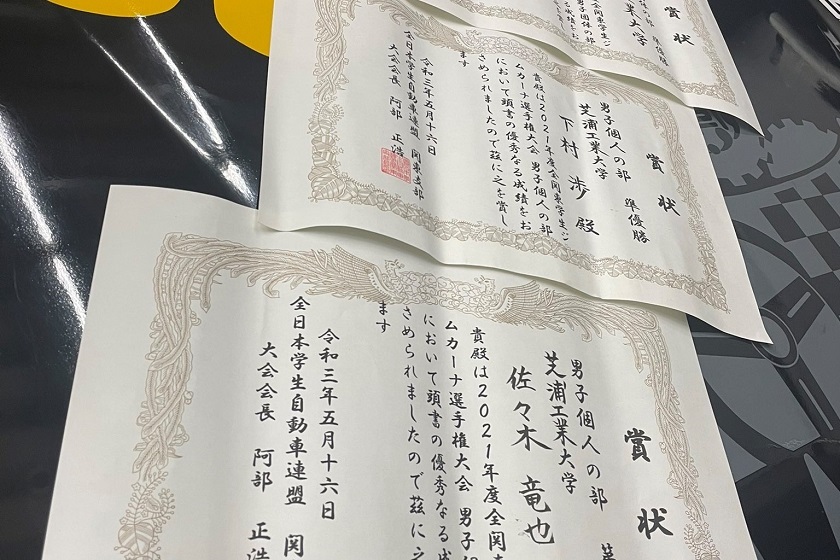 賞状
業大学
全関東学生ジ
男子団体の部
る成績をお
賞状
男子個人の部 準優勝
芝浦工業大学
下村 渉 殿
貴殿は2021年度全関東学生ジ
ムカーナ選手権大会 男子個人の部
において頭書の優秀なる成績をお
さめられましたので茲に之を賞し
ます
令和三年五月十六日
全日本学生自動車連盟 関東支部
大会会長 阿部 正浩
賞状
男子個人の部
芝浦工業大学
佐々木 竜也
貴殿は2021年度全関
ムカーナ選手権大会 男子
において頭書の優秀なる成
さめられましたので茲に之
ます
令和三年五月十六日
全日本学生自動車連盟 関
大会会長 阿部 正浩